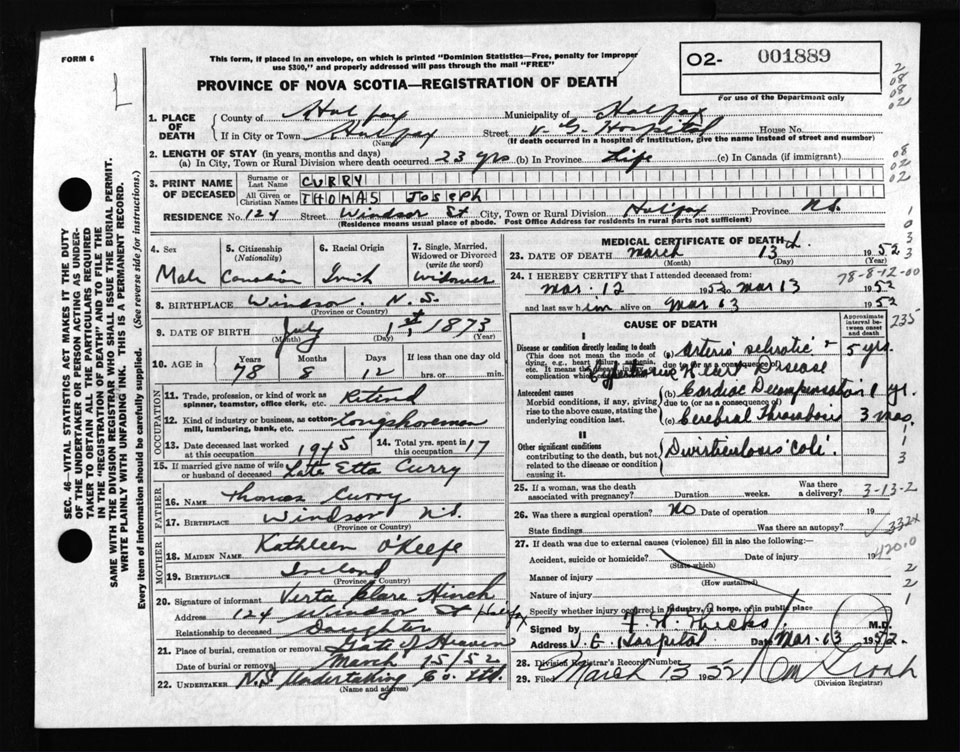 FORM 6
This form, if placed in an envelope, on which is printed "Dominion Statistics—Free, penalty for improper
use $300," and properly addressed will pass through the mail "FREE"
02- 001889
PROVINCE OF NOVA SCOTIA—REGISTRATION OF DEATH
For use of the Department only
1. PLACE OF DEATH
County of Halifax Municipality of Halifax
If in City or Town Halifax Street V. G. Hospital House No.
(Name) (If death occurred in a hospital or institution, give the name instead of street and number)
2. LENGTH OF STAY (in years, months and days)
(a) In City, Town or Rural Division where death occurred 23 yrs (b) In Province Life (c) In Canada (if immigrant)
3. PRINT NAME OF DECEASED
Surname or Last Name CURRY
All Given or Christian Names THOMAS JOSEPH
RESIDENCE No. 124 Street Windsor St City, Town or Rural Division Halifax Province N.S.
(Residence means usual place of abode. Post Office Address for residents in rural parts not sufficient)
4. Sex Male
5. Citizenship (Nationality) Canadian
6. Racial Origin Irish
7. Single, Married, Widowed or Divorced (write the word) Widower
8. BIRTHPLACE Windsor. N.S.
(Province or Country)
9. DATE OF BIRTH July 1st 1873
(Month) (Day) (Year)
10. AGE in Years 78 Months 8 Days 12 If less than one day old
hrs. or min.
OCCUPATION
11. Trade, profession, or kind of work as spinner, teamster, office clerk, etc. Retired
12. Kind of industry or business, as cotton-mill, lumbering, bank, etc. Longshoreman
13. Date deceased last worked at this occupation 1945 14. Total yrs. spent in this occupation 17
15. If married give name of wife or husband of deceased Late Etta Curry
FATHER
16. NAME Thomas Curry
17. BIRTHPLACE Windsor N.S.
(Province or Country)
MOTHER
18. MAIDEN NAME Kathleen O'Keefe
19. BIRTHPLACE Ireland
(Province or Country)
20. Signature of informant Verta Clare Hinch
Address 124 Windsor St Halifax
Relationship to deceased Daughter
21. Place of burial, cremation or removal Gate of Heaven
Date of burial or removal March 15/52
22. UNDERTAKER N.S. Undertaking Co. Ltd.
(Name and address)
MEDICAL CERTIFICATE OF DEATH
23. DATE OF DEATH March 13th 1952
(Month) (Day)
24. I HEREBY CERTIFY that I attended deceased from:
Mar. 12 1952 to Mar 13 1952
and last saw him alive on Mar 13 1952
78-8-12-00
CAUSE OF DEATH
Approximate interval between onset and death
235
I
Disease or condition directly leading to death
(This does not mean the mode of dying, e.g., heart failure, asthenia, etc. It means the disease, injury, or complication which caused death)
(a) Arterio sclerotic + 5 yrs.
due to (or as a consequence of)
Hypertensive Heart Disease
Antecedent causes
Morbid conditions, if any, giving rise to the above cause, stating the underlying condition last.
(b) Cardiac Decompensation 1 yr.
due to (or as a consequence of)
(c) Cerebral Thrombosis 3 mos.
II
Other significant conditions
contributing to the death, but not related to the disease or condition causing it.
Diverticulosis coli
25. If a woman, was the death associated with pregnancy? Duration weeks. Was there a delivery?
3-13-2
26. Was there a surgical operation? NO Date of operation 19
State findings Was there an autopsy?
332x
27. If death was due to external causes (violence) fill in also the following:—
Accident, suicide or homicide? Date of injury 19
(State which)
Manner of injury
(How sustained)
Nature of injury
Specify whether injury occurred in industry, in home, or in public place
Signed by F. W. Hicks M.D.
Address V. G. Hospital Date Mar. 13 1952.
28. Division Registrar's Record Number
29. Filed March 13 1952
(Division Registrar)
SEC. 46—VITAL STATISTICS ACT MAKES IT THE DUTY
OF THE UNDERTAKER OR PERSON ACTING AS UNDERTAKER TO OBTAIN ALL THE PARTICULARS REQUIRED
IN THE "REGISTRATION OF DEATH" AND TO FILE THE
SAME WITH THE DIVISION REGISTRAR WHO SHALL ISSUE THE BURIAL PERMIT.
WRITE PLAINLY WITH UNFADING INK. THIS IS A PERMANENT RECORD.
Every item of information should be carefully supplied. (See reverse side for instructions.)